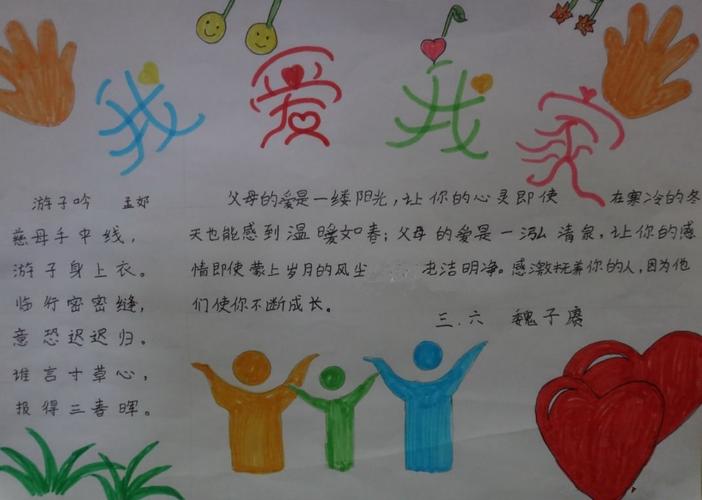 我爱我家
游子吟 孟郊
慈母手中线，
游子身上衣。
临行密密缝，
意恐迟迟归。
谁言寸草心，
报得三春晖。
父母的爱是一缕阳光，让你的心灵即使 在寒冷的冬
天也能感到温暖如春；父母的爱是一泓清泉，让你的感
情即使蒙上岁月的风尘 洁明净。感激抚养你的人，因为他
们使你不断成长。
三.六 魏子